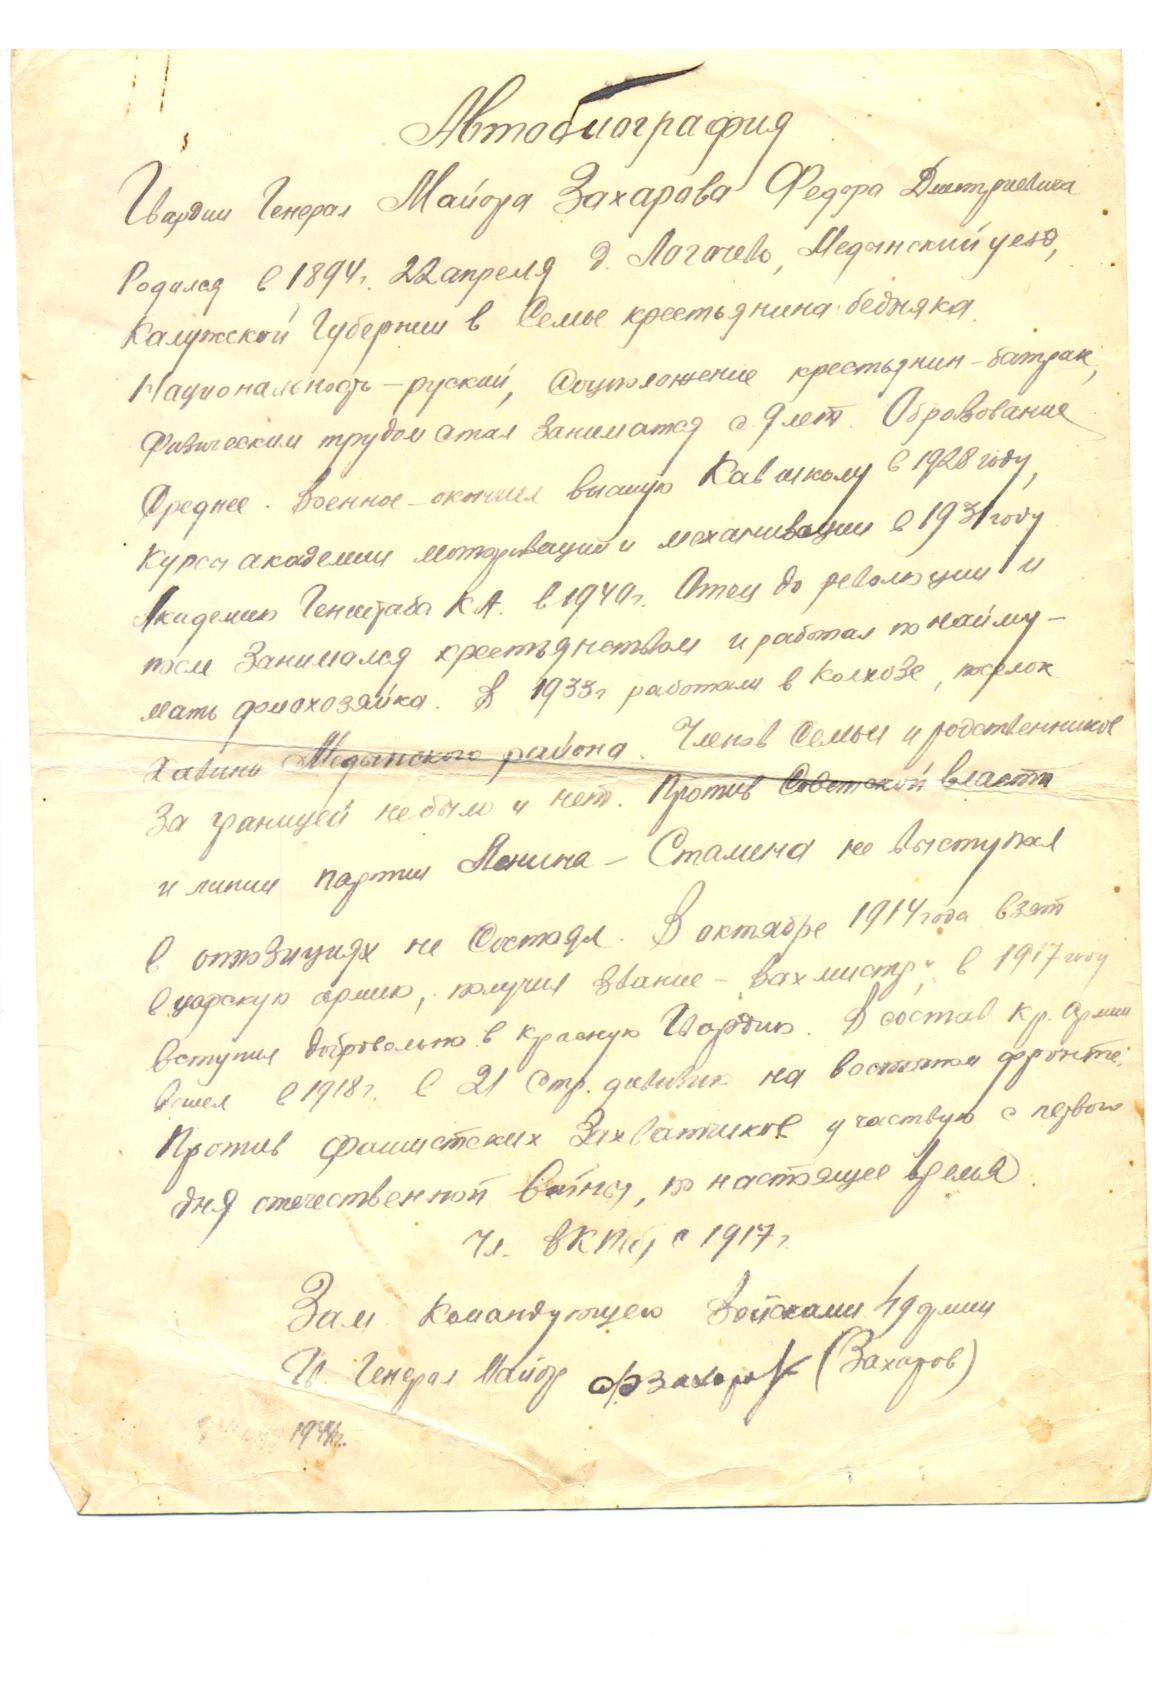 Автобиография
Гвардии Генерал Майора Захарова Федора Дмитриевича
Родился в 1894г. 22 апреля д. Логачево, Медынский уезд,
Калужской Губернии в Семье крестьянина бедняка.
Национальность – руский, Соцположение крестьянин – батрак,
Физическим трудом стал заниматся с 9 лет. Образование
Среднее. Военное – окончил высшую Кав школу в 1928 году,
Курсы академии моторизации и механизации в 1931 году
Академию Генштаба К.А. в 1940г. Отец до революции и
после Занимался крестьянством и работал по найму –
мать домохозяйка. В 1933г работали в Колхозе, поселок
Медынского района. Членов Семьи и родственников
За границей не было и нет. Против Советской власти
и линии партии Ленина – Сталина не выступал
в оппозициях не Состоял. В октябре 1914 года взят
в царскую армию, получил звание – "Вахмистр", в 1917 году
Вступил добровольно в красную Гвардию. В состав Кр. Армии
вошел в 1918г. в 21 стр. дивизию на восточном фронте.
Против фашистских Захватчиков участвую с первого
дня отечественной войны, по настоящее время.
Чл. ВКП(б) с 1917г.
Зам. Командующего Войсками 4 армии
Гв. Генерал Майор ФЗахаров (Захаров)